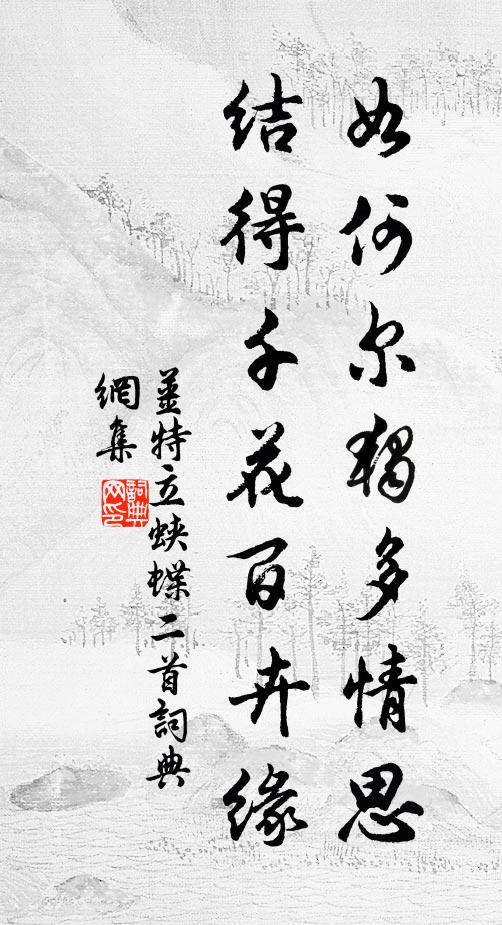 如何尔獨多情思
結得千花百卉緣
姜特立蛱蝶二首詞典
網集
詞典
网